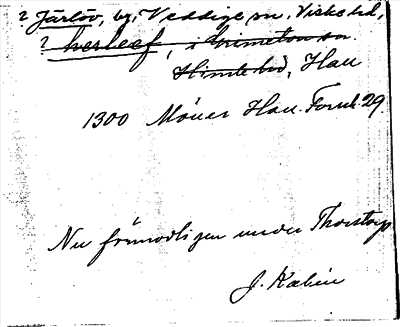 ? Järlöv, by, Veddige sn. Viske hd,
? herleef, i Grimeton sn
Himle hd, Hall
1300 Möner Hall. Fornh. 29.
Nu förmodligen under Thorstorp
J. Kalén